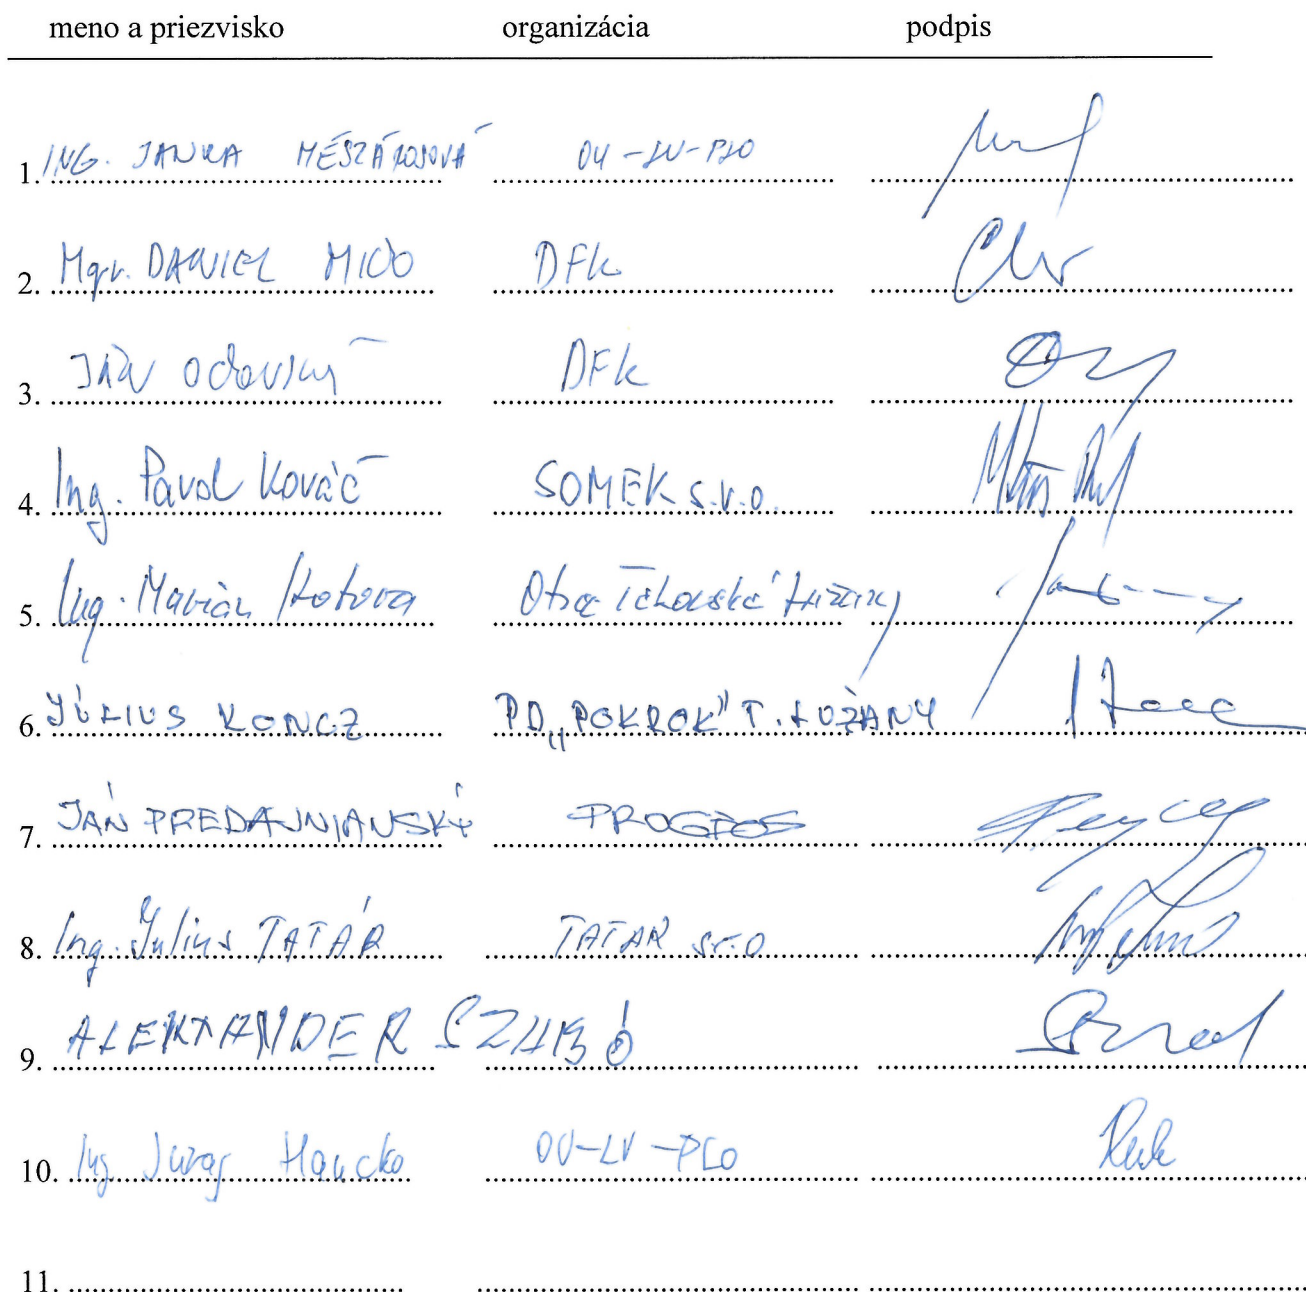 meno a priezvisko organizácia podpis
1. ING. JANKA MÉSZÁROSOVÁ OÚ-LV-PLO
2. Mgr. DANIEL MIČO DFK
3. JÁN DFK
4. Ing. Pavol Kováč SOMEK s.r.o.
5. Ing. Marián Kotora Obec Tekovské Lužany
6. JÚLIUS KONCZ PD „POKROK" T. LUŽANY
7. JÁN PREDAJNIANSKÝ PROGEOS
8. Ing. Július TATÁR TATAR s.r.o
9. ALEXANDER SZABÓ
10. Ing Juraj Hancko OÚ-LV-PLO
11.